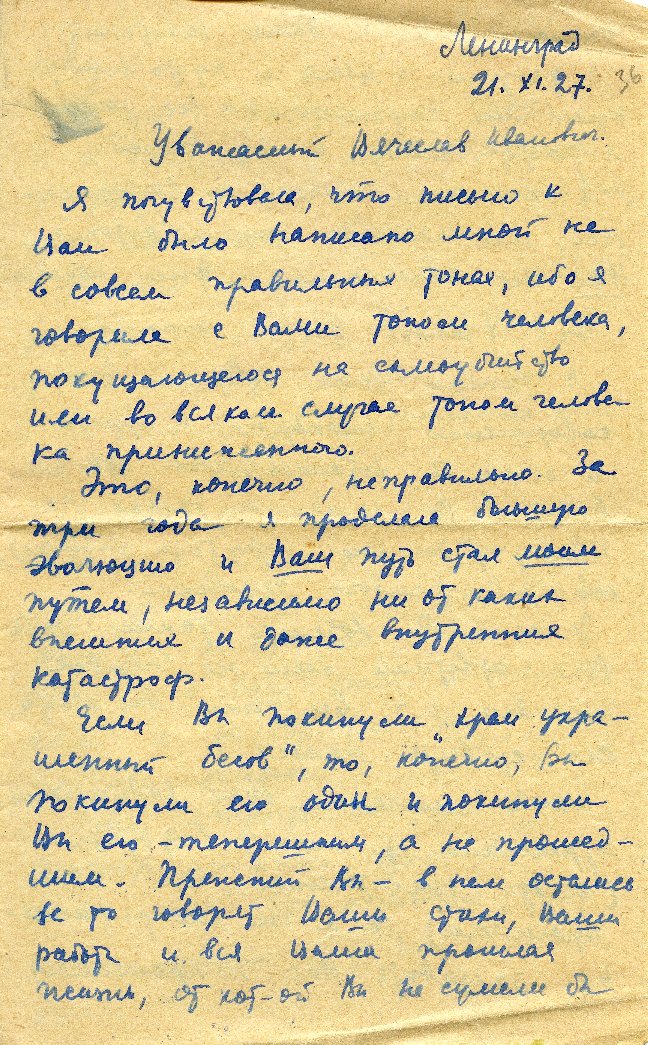 Ленинград
21. XI. 27.
36
Уважаемый Вячеслав Иванович.
Я почувствовала, что письмо к
Вам было написано мной не
в совсем правильных тонах, ибо я
говорила с Вами тоном человека,
покущающегося на самоубийство
или во всяком случае тоном челове-
ка приниженного.
Это, конечно, неправильно. За
три года я проделала большую
эволюцию и Ваш путь стал моим
путем, независимо ни от каких
внешних и даже внутренних
катастроф.
Если Вы покинули „храм укра-
шенный бесов", то, конечно, Вы
покинули его один и покинули
Вы его – теперешним, а не прошед-
шим. Прежний Вы – в нем остались
говорят Ваши стихи, Ваши
работы и вся Ваша прошлая
жизнь, от кот-ой Вы не сумели бы